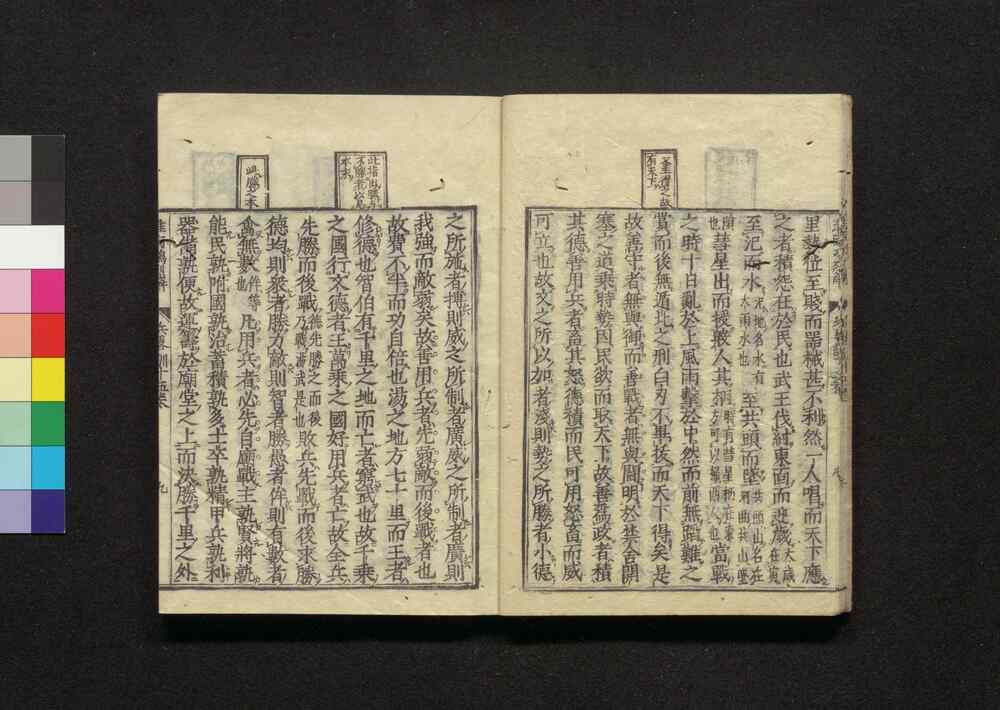 里勢位至賤而器械甚不利然一人唱而天下應
之者積怨在於民也武王伐紂東面而迎歲太歲在寅
至汜而水汜地名水有大雨水也至共頭而墜共頭山名在河曲共山墜
隕也彗星出而授殷人其柄時有彗星柄在東方可以掃西人也當戰
之時十日亂於上風雨擊於中然而前無蹈難之
賞而後無遁北之刑白刃不畢拔而天下得矣是
故善守者無與御而善戰者無與鬬明於禁舍開
塞之道乘時勢因民欲而取天下故善爲政者積
其德善用兵者畜其怒德積而民可用怒畜而威
可立也故文之所以加者淺則勢之所勝者小德
之所施者博則威之所制者廣威之所制者廣則
我強而敵弱矣故善用兵者先弱敵而後戰者也
故費不半而功自倍也湯之地方七十里而王者
修德也智伯有千里之地而亡者窮武也故千乘
之國行文德者王萬乘之國好用兵者亡故全兵
先勝而後戰德先勝之而後乃戰湯武是也敗兵先戰而後求勝
德均則衆者勝力敵則智者勝愚者侔則有數者
禽無數侔等也凡用兵者必先自廟戰主孰賢將孰
能民孰附國孰治蓄積孰多士卒孰精甲兵孰利
器備孰便故運籌於廟堂之上而決勝千里之外